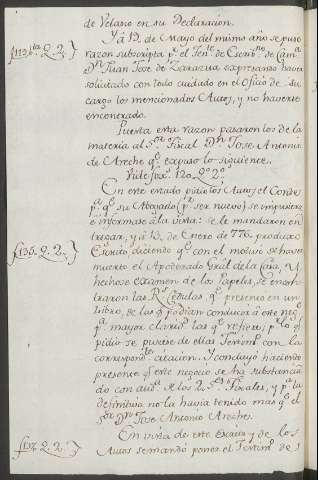 de Velasco en su Declaracion.
Y á 19. de Mayo del mismo año se puso
f119 bta. Q. 2.
razon subscripta pr. el Tente. de Escribno. de Cama.
Dn. Juan Jose de Zarazua expresando haver
solicitado con todo cuidado en el Oficio de su
cargo los mencionados Autos, y no haverse
encontrado.
Puesta esta razon pasaron los de la
materia al Sor. Fiscal Dn. Jose Antonio
de Areche qe. expuso lo siguiente.
120. Q. 2.
En este estado pidio los Autos el Conde
pa. qe. su Abogado (pr. ser nuevo) se impusiera
é informase á la vista: se le mandaron en-
tregar, y á 13. de Enero de 776. produxo
f135. Q. 2.
Escrito diciendo qe. con el motivo de haver
muerto el Apoderado Grál. de la Casa, y
hechose examen de los Papeles, se encon-
traron las Rs. Cedulas, qe. presento en un
Libro, de las qe. podian conducir á este nego.
pa. mayor claridad las qe. refiere; pr. lo qe.
pidio se pusiese de ellas Testimo. con la
correspondte. citacion. Y concluyó haciendo
presente qe. este negocio se ha substancia-
do con auda. de los 2. Sres. Fiscales, y pa. la
definitiva no la havia tenido mas qe. el
Sor. Dn. Jose Antonio Areche.
f137. Q. 2.
En vista de este Escrito y de los
Autos se mando poner el Testimo. de